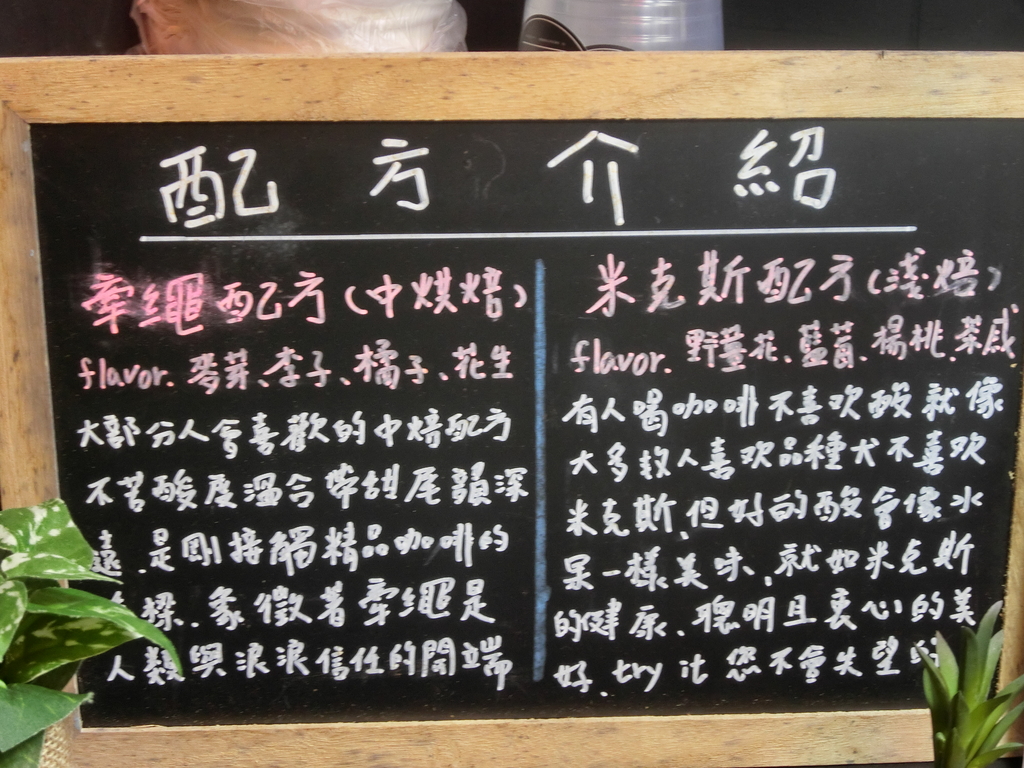 配方介紹
牽繩配方(中烘焙)
flavor. 麥芽、李子、橘子、花生
大部分人會喜歡的中焙配方
不苦酸度溫合帶甜尾韻深
遠.是剛接觸精品咖啡的
樑.象徵著牽繩是
人類與浪浪信任的開端
米克斯配方(淺焙)
flavor. 野薑花、藍莓、楊桃、茶感
有人喝咖啡不喜欢酸就像
大多数人喜欢品種犬不喜欢
米克斯,但好的酸會像水
果一樣美味,就如米克斯
的健康、聰明且衷心的美
好.try it 您不會失望的